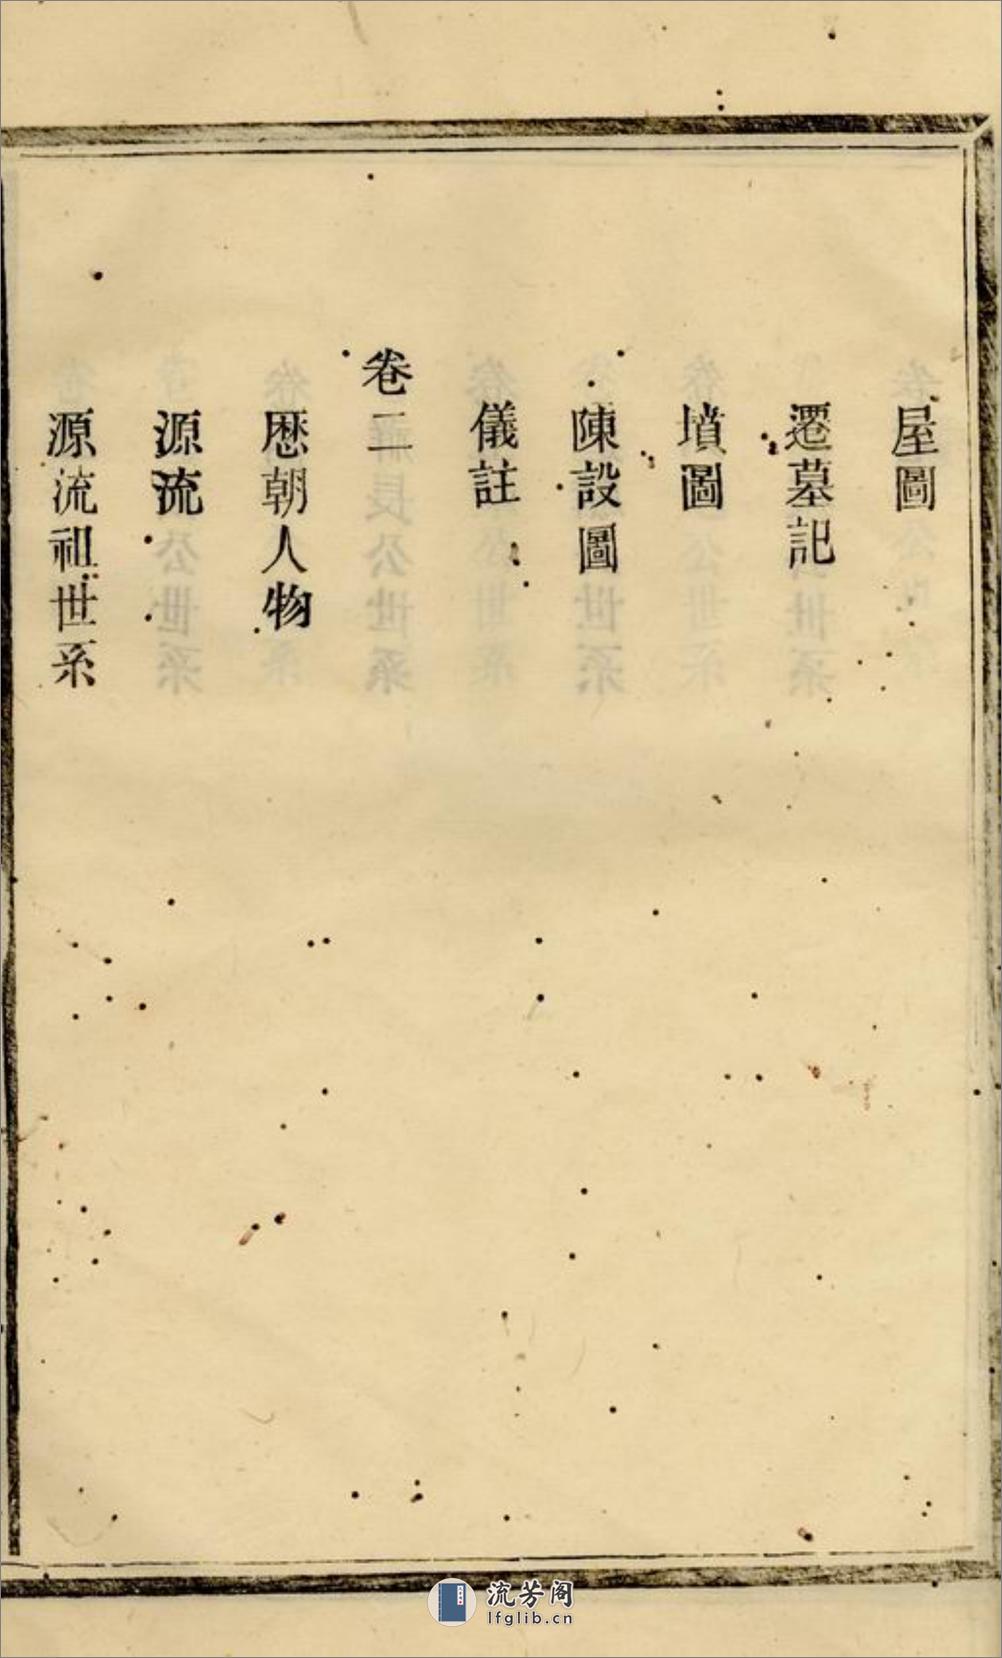 屋圖
遷墓記
墳圖
陳設圖
儀註
卷二
歷朝人物
源流
源流祖世系
流芳阁
lfglib.cn